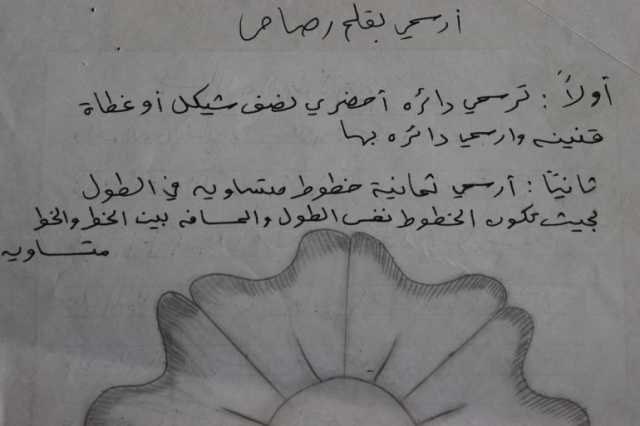 أرسمي بقلم رصاص
أولاً : ترسمي دائره أحضري نصف شيكل أو غطاة
قنينه وارسمي دائره بها
ثانيًا : أرسمي ثمانية خطوط متساويه في الطول
بحيث تكون الخطوط نفس الطول والمسافه بين الخط والخط
متساويه